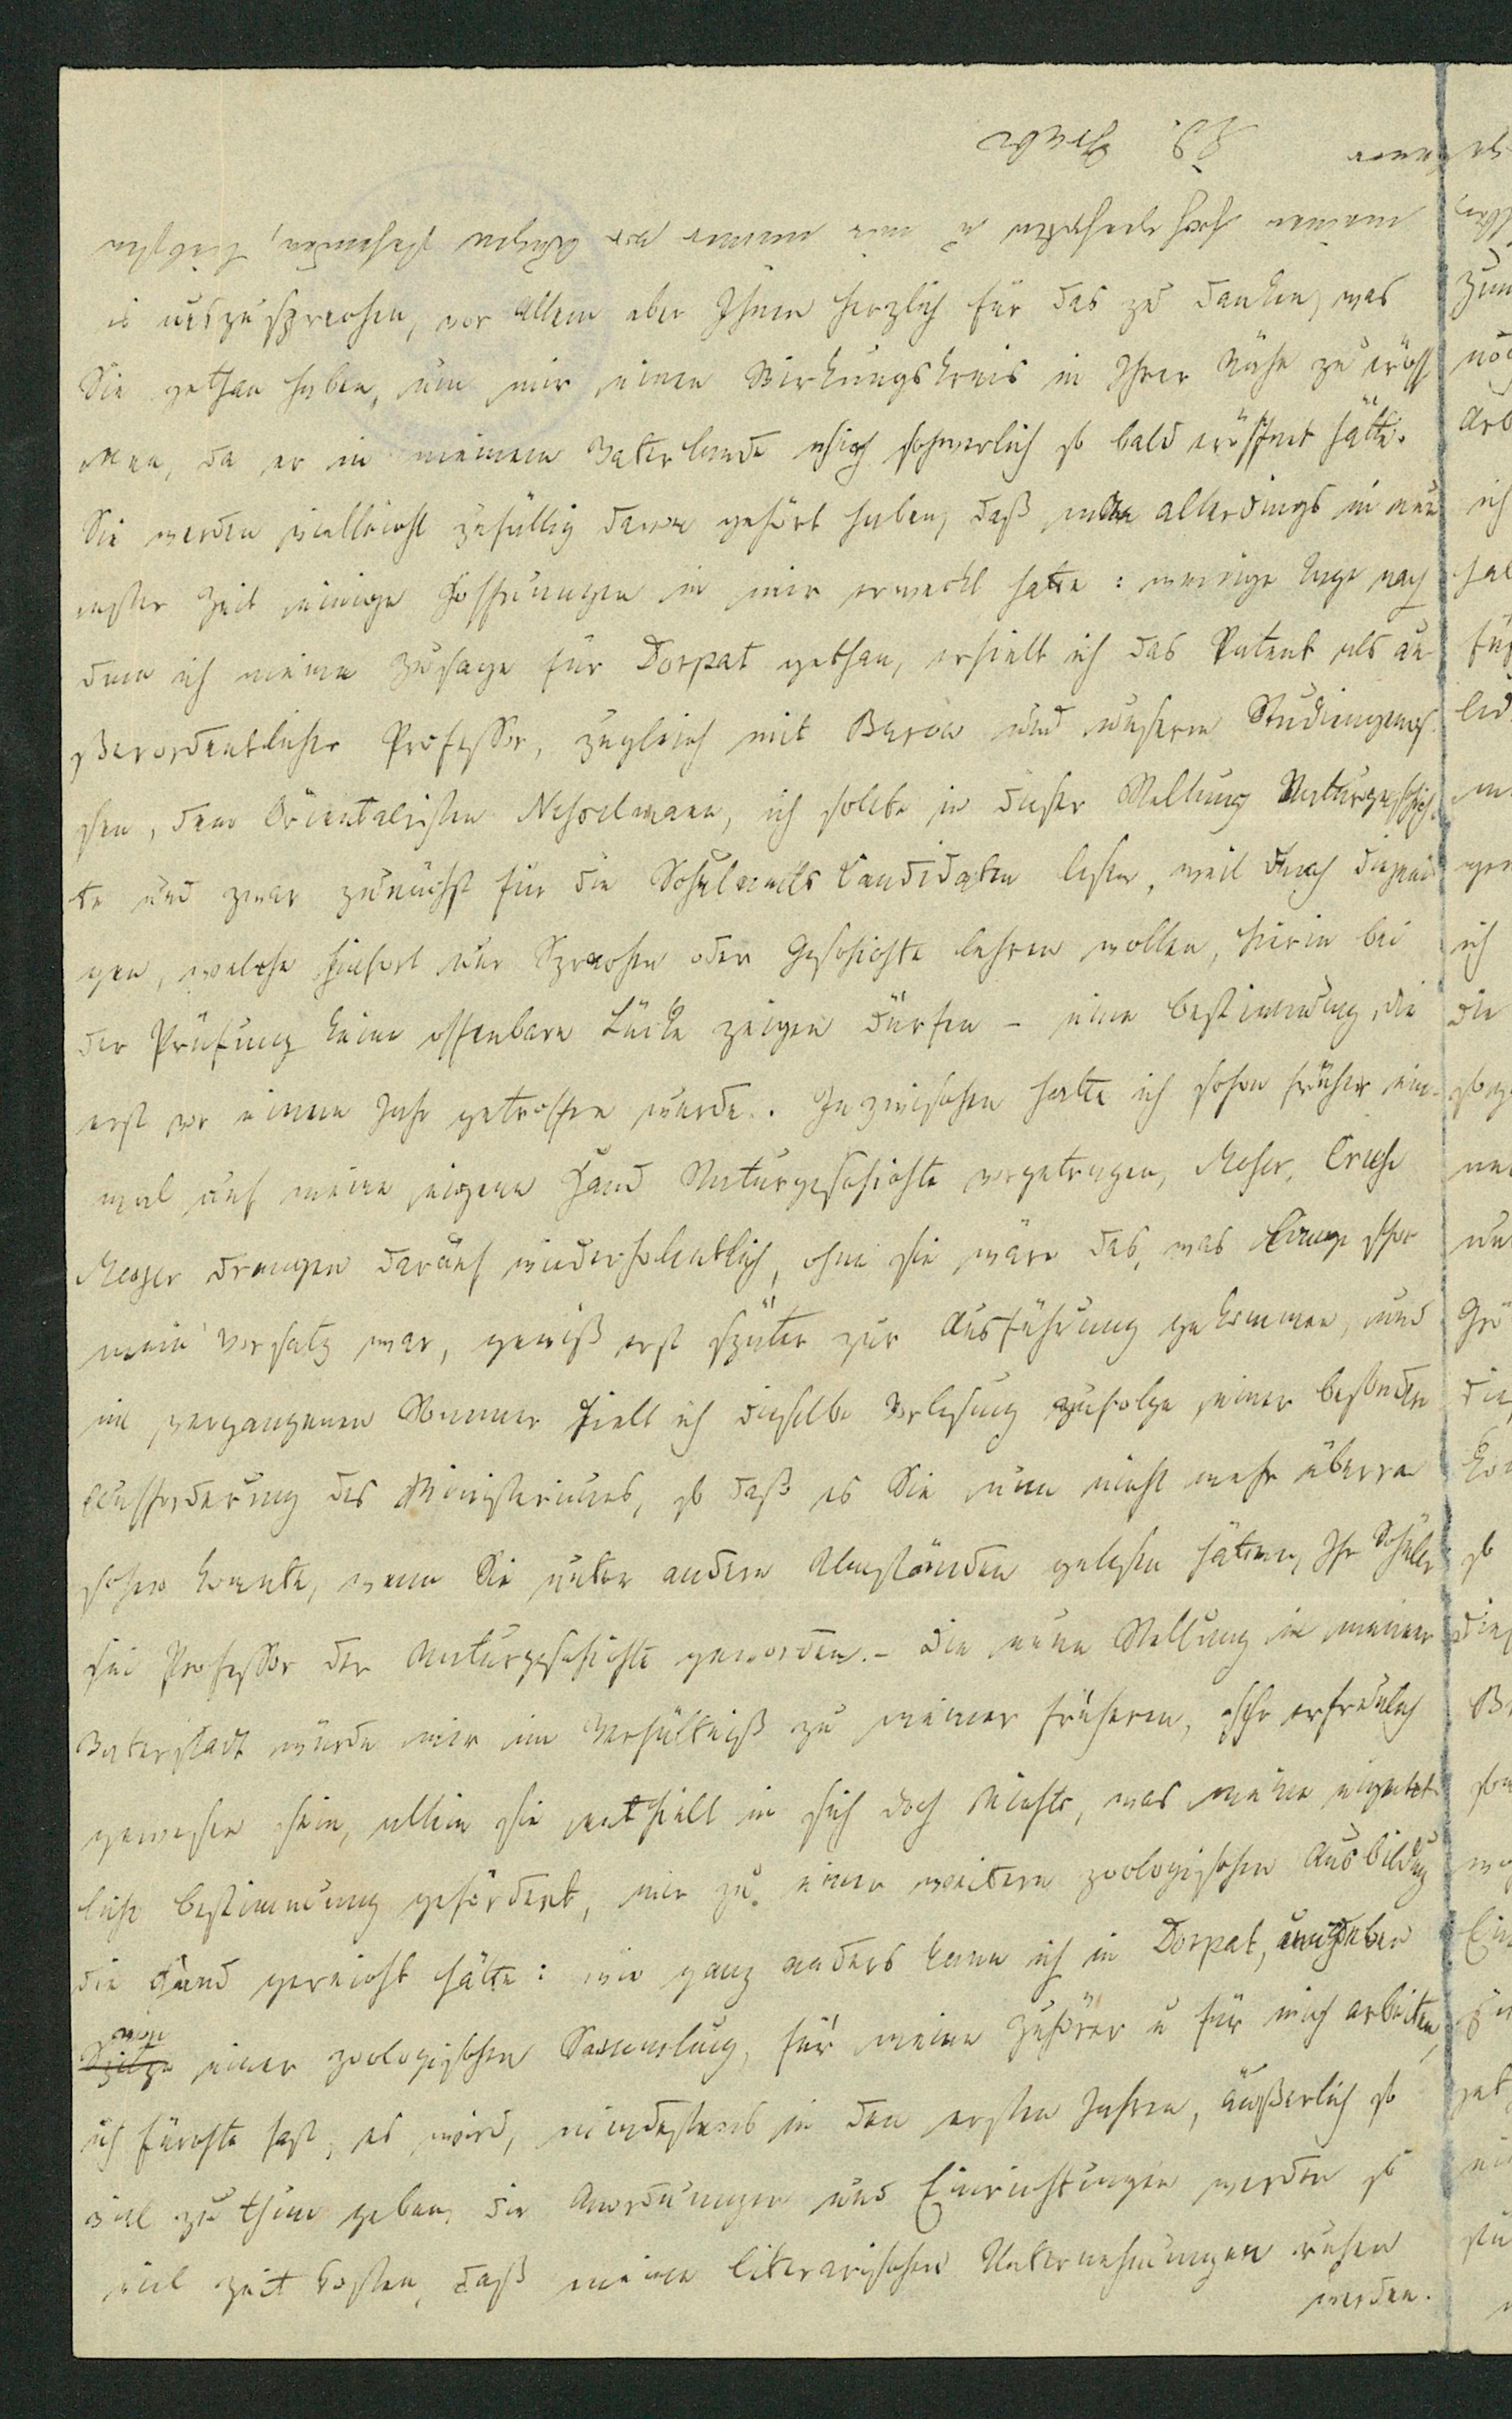 meiner Hochschätzung u
Ed. Grube
es auszusprechen, vor Allem aber Ihnen herzlich für das zu danken, was
Sie gethan haben, um mir einen Wirkungskreis in Ihrer Nähe zu eröff
nen, da er in meinem Vaterlande sich schwerlich so bald eröffnet hätte.
Sie werden vielleicht zufällig davon gehört haben, daß man allerdings in neu
ester Zeit einige Hoffnungen in mir erweckt hatte: wenige Tage nach
dem ich meine Zusage für Dorpat gethan, erhielt ich das Patent als au
ßerordentlicher Professor, zugleich mit Burow und unserm Studiengenos
sen, dem Orientalisten Nesselmann, ich sollte in dieser Stellung Naturgeschich
te und zwar zunächst für die Schulamts Candidaten lesen, weil auch diejeni
gen, welche hinfort nur Sprachen oder Geschichte lehren wollen, hierin bei
der Prüfung keine offenbare Lücke zeigen dürfen – eine Bestimmung, die
erst vor einem Jahr getroffen wurde. Inzwischen hatte ich schon früher ein-
mal auf meine eigene Hand Naturgeschichte vorgetragen, Moser,
Meyer drangen darauf wiederholentlich, ohne sie wäre das, was lange schon
mein Vorsatz war, gewiß erst später zur Ausführung gekommen, und
im vergangenen Sommer hielt ich dieselbe Vorlesung zufolge einer besondern
Aufforderung des Ministeriums, so daß es Sie nun nicht mehr überra
schen konnte, wenn Sie unter andern Umständen gelesen hätten, Ihr Schüler
sei Professor der Naturgeschichte geworden. – Die neue Stellung in meiner
Vaterstadt würde mir im Verhältniß zu meiner früheren, sehr erfreulich
gewesen sein, allein sie enthielt in sich doch Nichts, was meine eigent
liche Bestimmung gefördert, mir zu einer weitern zoologischen Ausbildung
die Hand gereicht hätte: wie ganz anders kann ich in Dorpat, umgeben
von
einer zoologischen Sammlung, für meine Zuhörer u für mich arbeiten,
ich fürchte fast, es wird, mindestens in den ersten Jahren, äußerlich so
viel zu thun geben, die Anordnungen und Einrichtungen werden so
viel Zeit kosten, daß meine literarischen Unternehmungen ruhen
werden.